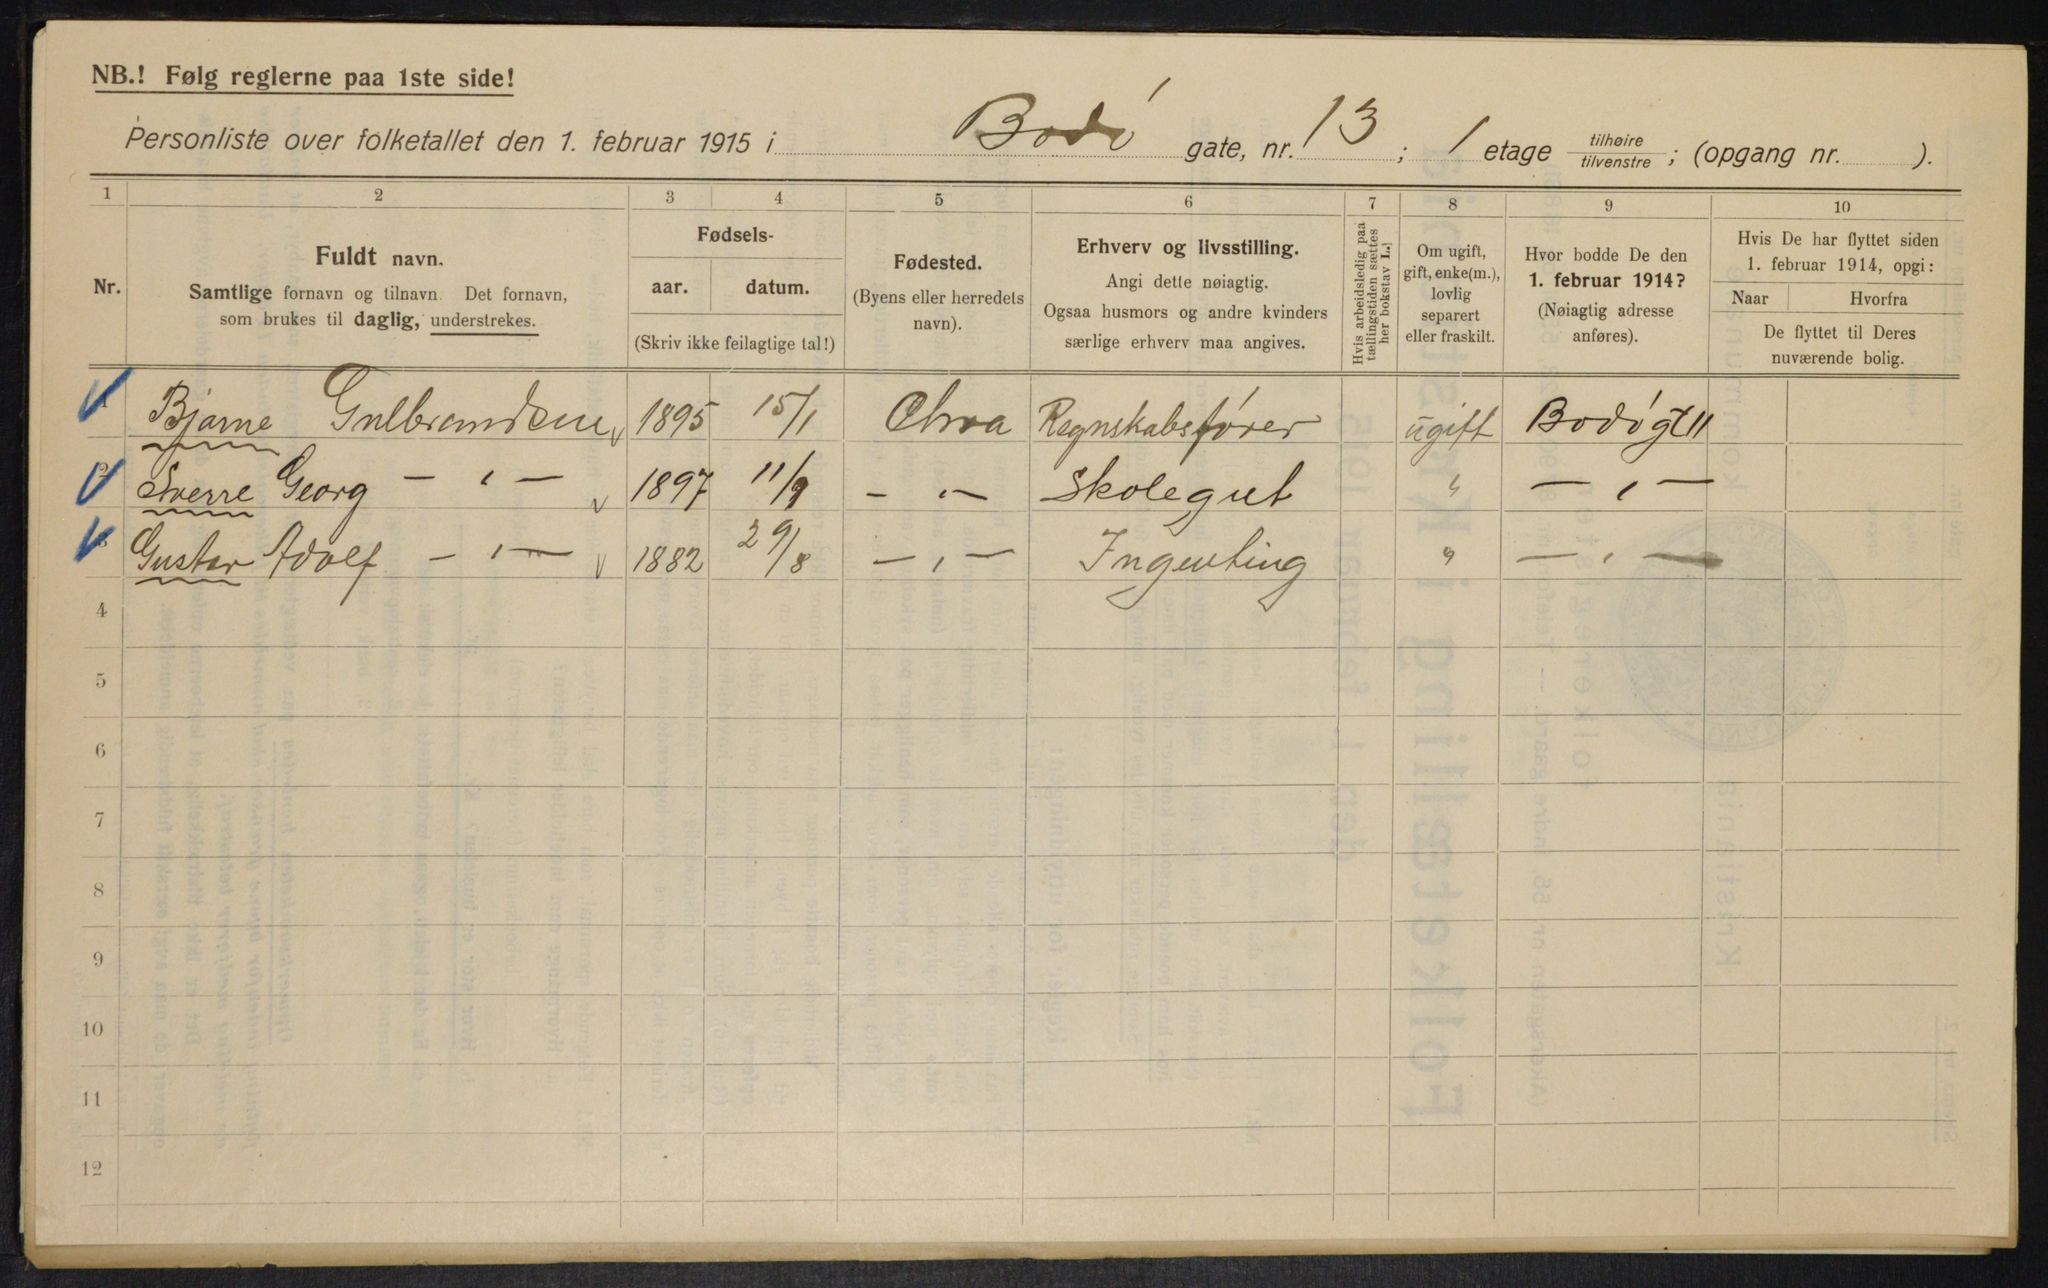 NB.! Følg reglerne paa 1ste side!
Personliste over folketallet den 1. februar 1915 i Bodó gate, nr. 13 ; 1 etage tilhøire tilvenstre ; (opgang nr. ).
1 2 3 4 5 6 7 8 9 10
Nr.
Fuldt navn.
Samtlige fornavn og tilnavn. Det fornavn,
som brukes til daglig, understrekes.
Fødsels-
aar. datum.
(Skriv ikke feilagtige tal!)
Fødested.
(Byens eller herredets
navn).
Erhverv og livsstilling.
Angi dette nøiagtig.
Ogsaa husmors og andre kvinders
særlige erhverv maa angives.
Hvis arbeidsledig paa
tællingstiden sættes
her bokstav L.
Om ugift,
gift, enke(m.),
lovlig
separert
eller fraskilt.
Hvor bodde De den
1. februar 1914?
(Nøiagtig adresse
anføres).
Hvis De har flyttet siden
1. februar 1914, opgi:
Naar Hvorfra
De flyttet til Deres
nuværende bolig.
1 Bjarne Gulbrandsen 1895 15/1 Chra Regnskabsfórer ugift Bodógt 11
2 Sverre Georg — „ — 1897 11/9 — „ — Skolegut „ — „ —
3 Gustav Adolf — „ — 1882 29/8 — „ — Ingenting „ — „ —
4
5
6
7
8
9
10
11
12